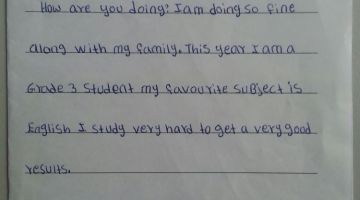 How are you doing? I am doing so fine
along with my family. This year I am a
Grade 3 Student my favourite subject is
English I study very hard to get a very good
results.